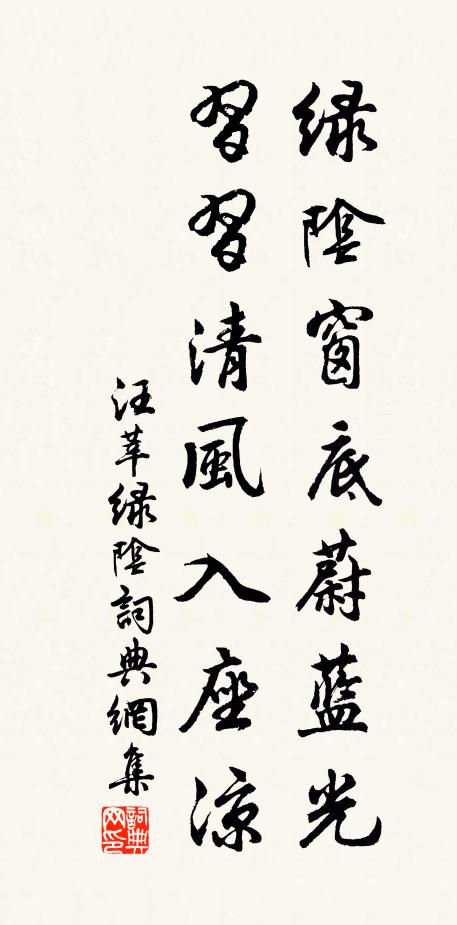 綠陰窗底蔚藍光
習習清風入座涼
汪莘綠陰詞典網集
詞典網印